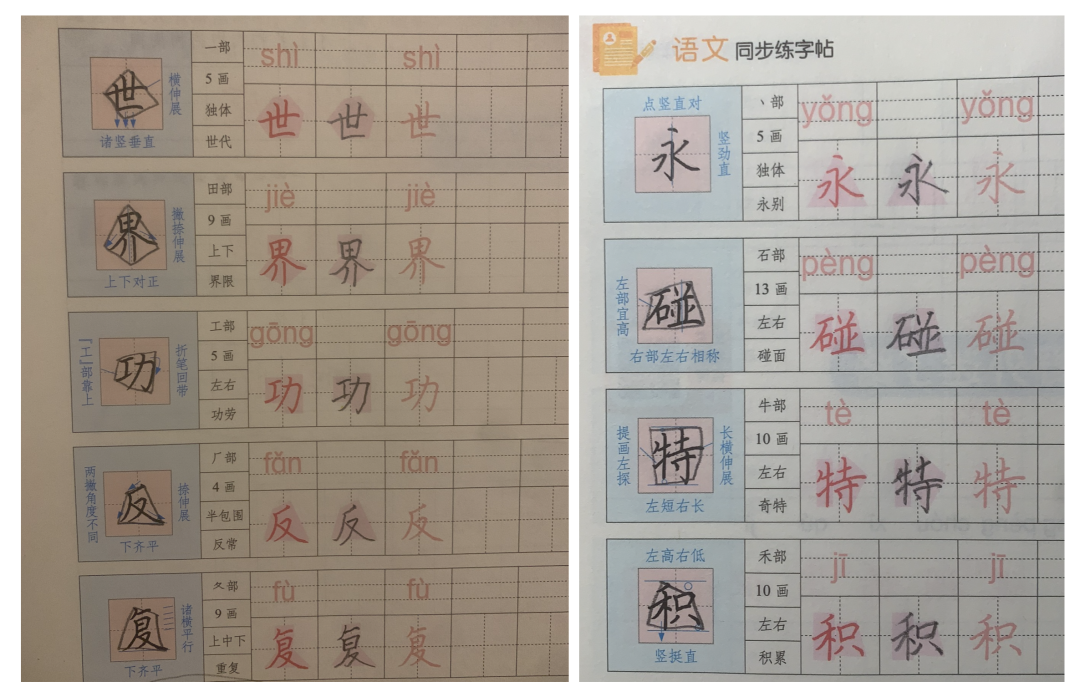 一部
shì
shì
5画
世
横伸展
独体
世
世
世
诸竖垂直
世代
田部
jiè
jiè
9画
界
撇捺伸展
上下
界
界
界
上下对正
界限
工部
gōng
gōng
5画
「工」部靠上
功
折笔回带
左右
功
功
功
功劳
厂部
fǎn
fǎn
4画
两撇角度不同
反
捺伸展
半包围
反
反
反
下齐平
反常
夂部
fù
fù
9画
复
诸横平行
上中下
复
复
复
下齐平
重复
语文 同步练字帖
点竖直对
丶部
yǒng
yǒng
5画
永
竖劲直
独体
永
永
永
永别
石部
pèng
pèng
13画
左部宜高
碰
左右
碰
碰
碰
右部左右相称
碰面
牛部
tè
tè
10画
提画左探
特
长横伸展
左右
特
特
特
左短右长
奇特
左高右低
禾部
jī
jī
10画
积
左右
积
积
积
竖挺直
积累